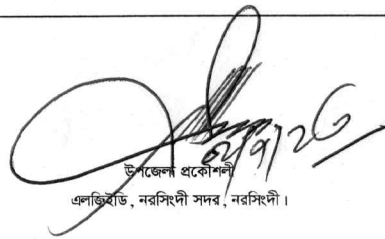 উপজেলা প্রকৌশলী
এলজিইডি, নরসিংদী সদর, নরসিংদী।